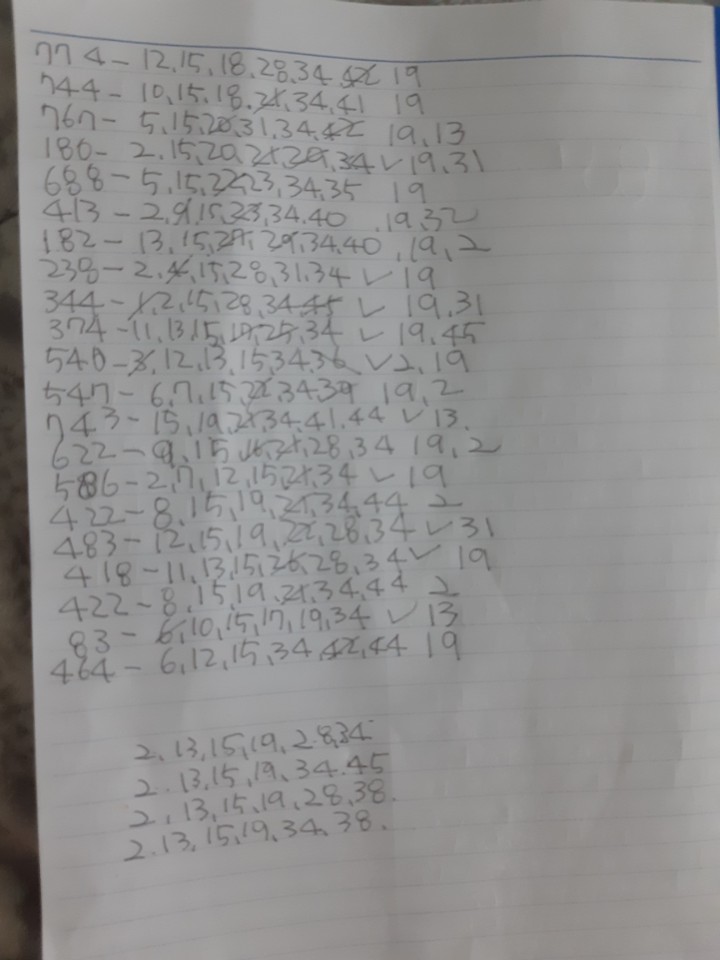 774- 12,15,18,28,34,42 19
744- 10,15,18,21,34,41 19
767- 5,15,20,31,34,42 19,13
180- 2,15,20,21,29,34 ✓ 19,31
688- 5,15,22,23,34,35 19
413- 2,9,15,23,34,40 ,19,32
182- 13,15,27,29,34,40 ,19,2
238- 2,4,15,28,31,34 ✓ 19
344- 1,2,15,28,34,45 ✓ 19,31
374-11,13,15,17,25,34 ✓ 19,45
540-3,12,13,15,34,36 ✓ 2,19
547- 6,7,15,22,34,39 19,2
743- 15,19,21,34,41,44 ✓ 13.
622- 9,15,16,21,28,34 19,2
586-2,7,12,15,21,34 ✓ 19
422- 8,15,19,21,34,44 2
483- 12,15,19,22,28,34 ✓ 31
418-11,13,15,26,28,34 ✓ 19
422-8,15,19,21,34,44 2
83- 6,10,15,17,19,34 ✓ 13
464- 6,12,15,34,42,44 19
2,13,15,19,28,34
2.13,15,19,34.45
2,13,15,19,28,38.
2.13,15,19,34,38.